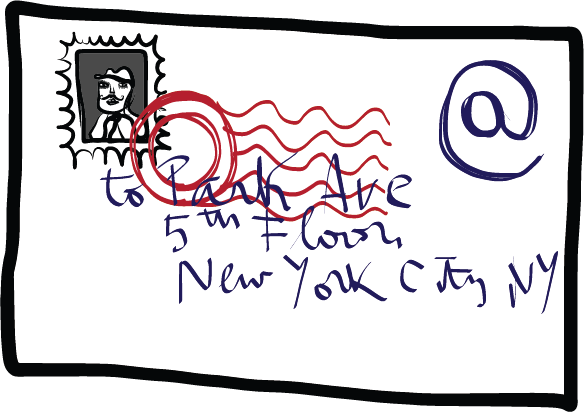 @
to Park Ave
5th Floor,
New York City, NY